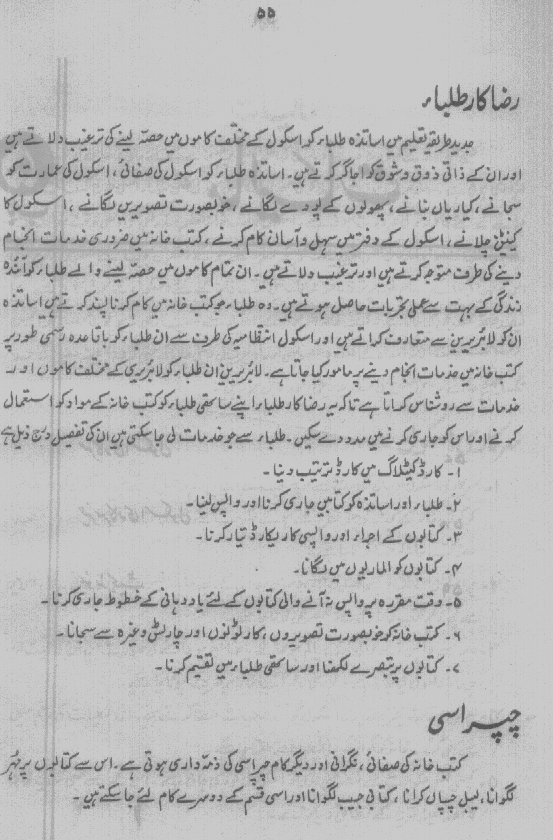 ۵۵
رضاکار طلباء
جدید طریقۂ تعلیم میں اساتذہ طلباء کو اسکول کے مختلف کاموں میں حصہ لینے کی ترغیب دلاتے ہیں
اور ان کے ذاتی ذوق و شوق کو اجاگر کرتے ہیں۔ اساتذہ طلباء کو اسکول کی صفائی، اسکول کی عمارت کو
سجانے، کیاریاں بنانے، پھولوں کے پودے لگانے، خوبصورت تصویریں لگانے، اسکول کا
کینٹن چلانے، اسکول کے دفتر میں سہل و آسان کام کرنے، کتب خانہ میں ضروری خدمات انجام
دینے کی طرف متوجہ کرتے ہیں اور ترغیب دلاتے ہیں۔ ان تمام کاموں میں حصہ لینے والے طلباء کو آئندہ
زندگی کے بہت سے عملی تجربات حاصل ہوتے ہیں۔ وہ طلباء جو کتب خانہ میں کام کرنا پسند کرتے ہیں اساتذہ
ان کو لائبریرین سے متعارف کراتے ہیں اور اسکول انتظامیہ کی طرف سے ان طلباء کو باقاعدہ رسمی طور پر
کتب خانہ میں خدمات انجام دینے پر مامور کیا جاتا ہے۔ لائبریرین ان طلباء کو لائبریری کے مختلف کاموں اور
خدمات سے روشناس کراتا ہے تاکہ یہ رضاکار طلباء اپنے ساتھی طلباء کو کتب خانہ کے مواد کو استعمال
کرنے اور اس کو جاری کرنے میں مدد دے سکیں۔ طلباء سے جو خدمات لی جا سکتی ہیں ان کی تفصیل درج ذیل ہے
۱۔ کارڈ کیٹلاگ میں کارڈ ترتیب دینا۔
۲۔ طلباء اور اساتذہ کو کتابیں جاری کرنا اور واپس لینا۔
۳۔ کتابوں کے اجراء اور واپسی کا ریکارڈ تیار کرنا۔
۴۔ کتابوں کو الماریوں میں لگانا۔
۵۔ وقت مقررہ پر واپس نہ آنے والی کتابوں کے لئے یاددہانی کے خطوط جاری کرنا۔
۶۔ کتب خانہ کو خوبصورت تصویروں، کارٹونوں اور چارٹس وغیرہ سے سجانا۔
۷۔ کتابوں پر تبصرے لکھنا اور ساتھی طلباء میں تقسیم کرنا۔
چپراسی
کتب خانہ کی صفائی، نگرانی اور دیگر کام چپراسی کی ذمہ داری ہوتی ہے۔ اس سے کتابوں پر مُہر
لگوانا، لیبل چسپاں کرانا، کتابی جیب لگوانا اور اسی قسم کے دوسرے کام لئے جا سکتے ہیں۔